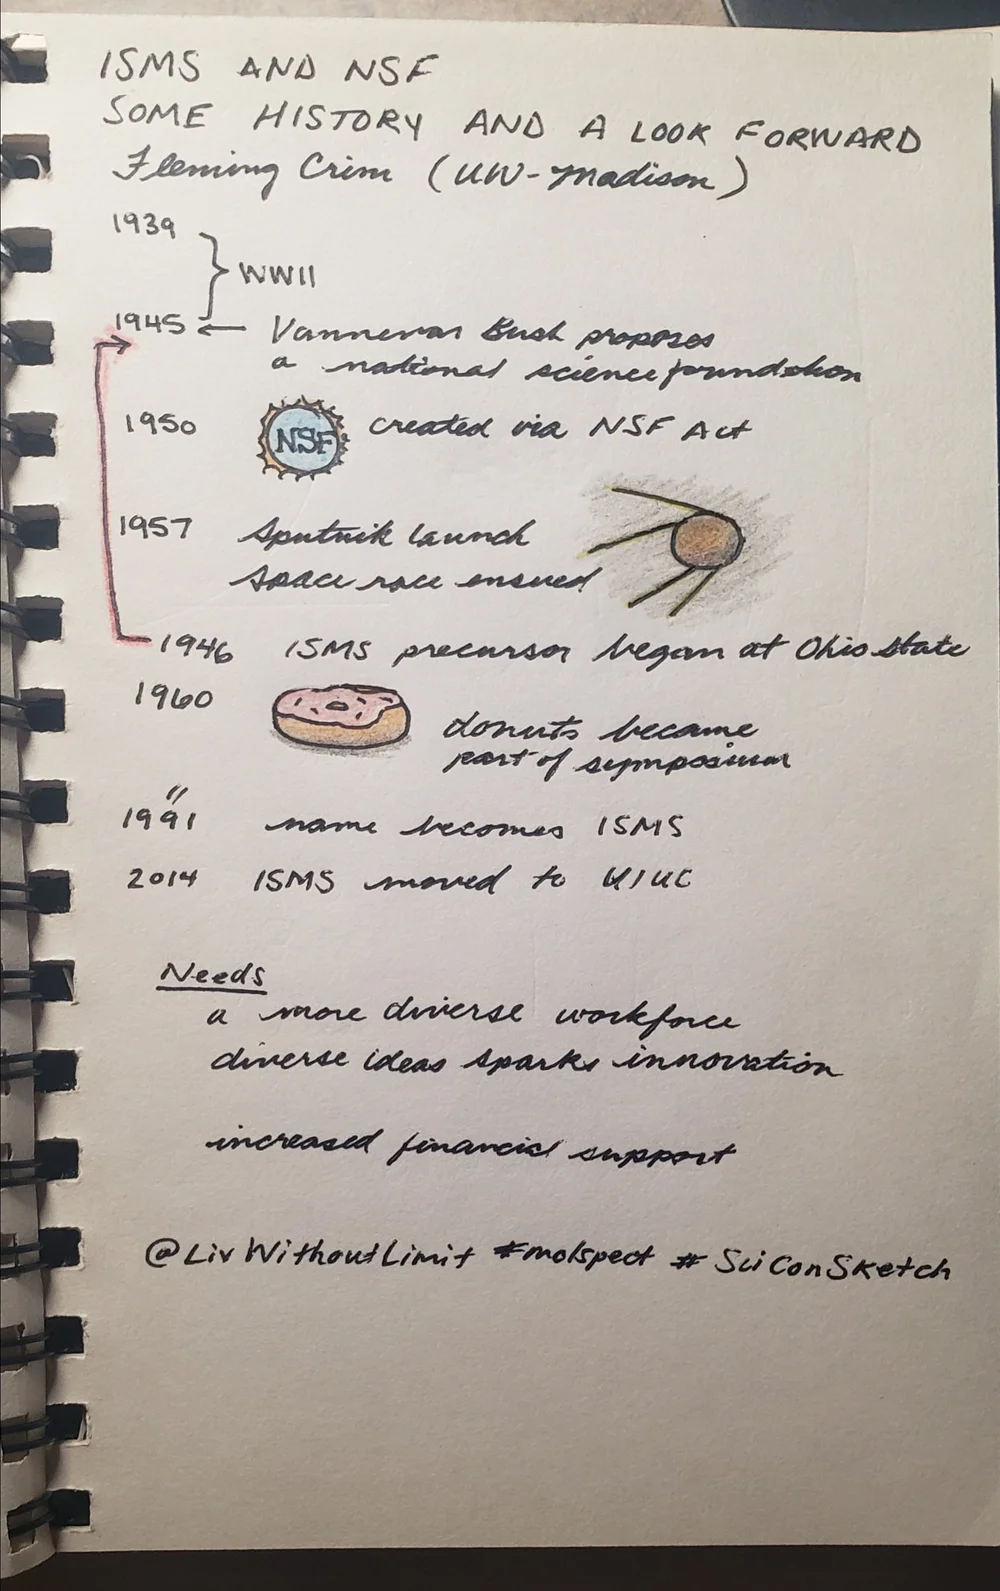 ISMS AND NSF
SOME HISTORY AND A LOOK FORWARD
Fleming Crim (UW-Madison)
1939
WWII
1945 ← Vannevar Bush proposes
a national science foundation
1950 NSF created via NSF Act
1957 Sputnik launch
space race ensued
1946 ISMS precursor began at Ohio State
1960 donuts became
part of symposium
1991 name becomes ISMS
2014 ISMS moved to UIUC
Needs
a more diverse workforce
diverse ideas sparks innovation
increased financial support
@LivWithoutLimit #molspect #SciConSketch